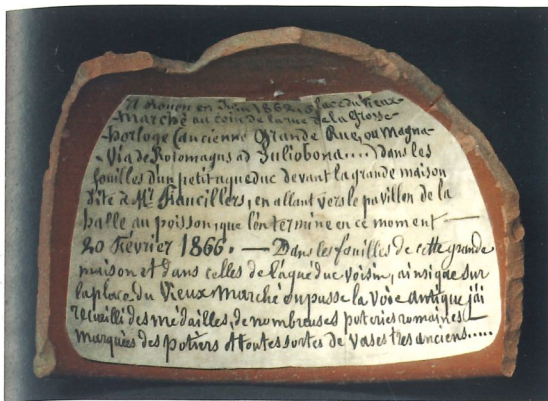 à Rouen en Juin 1862, place du Vieux-
-Marché au coin de la rue de la Grosse-
-horloge (ancienne Grande Rue, ou Magna-
-Via de Rotomagus ad Juliobona....) dans les
fouilles d'un petit aqueduc devant la grande maison
dite de Mr, en allant vers le pavillon de la
halle au poisson, que l'on termine en ce moment —
20 Février 1866. — Dans les fouilles de cette grande
maison et dans celles de l'aqueduc voisin, ainsi que sur
la place du Vieux Marché on passe la voie antique j'ai
recueilli des médailles, de nombreuses poteries romaines
marquées des potiers et toutes sortes de vases très anciens.....